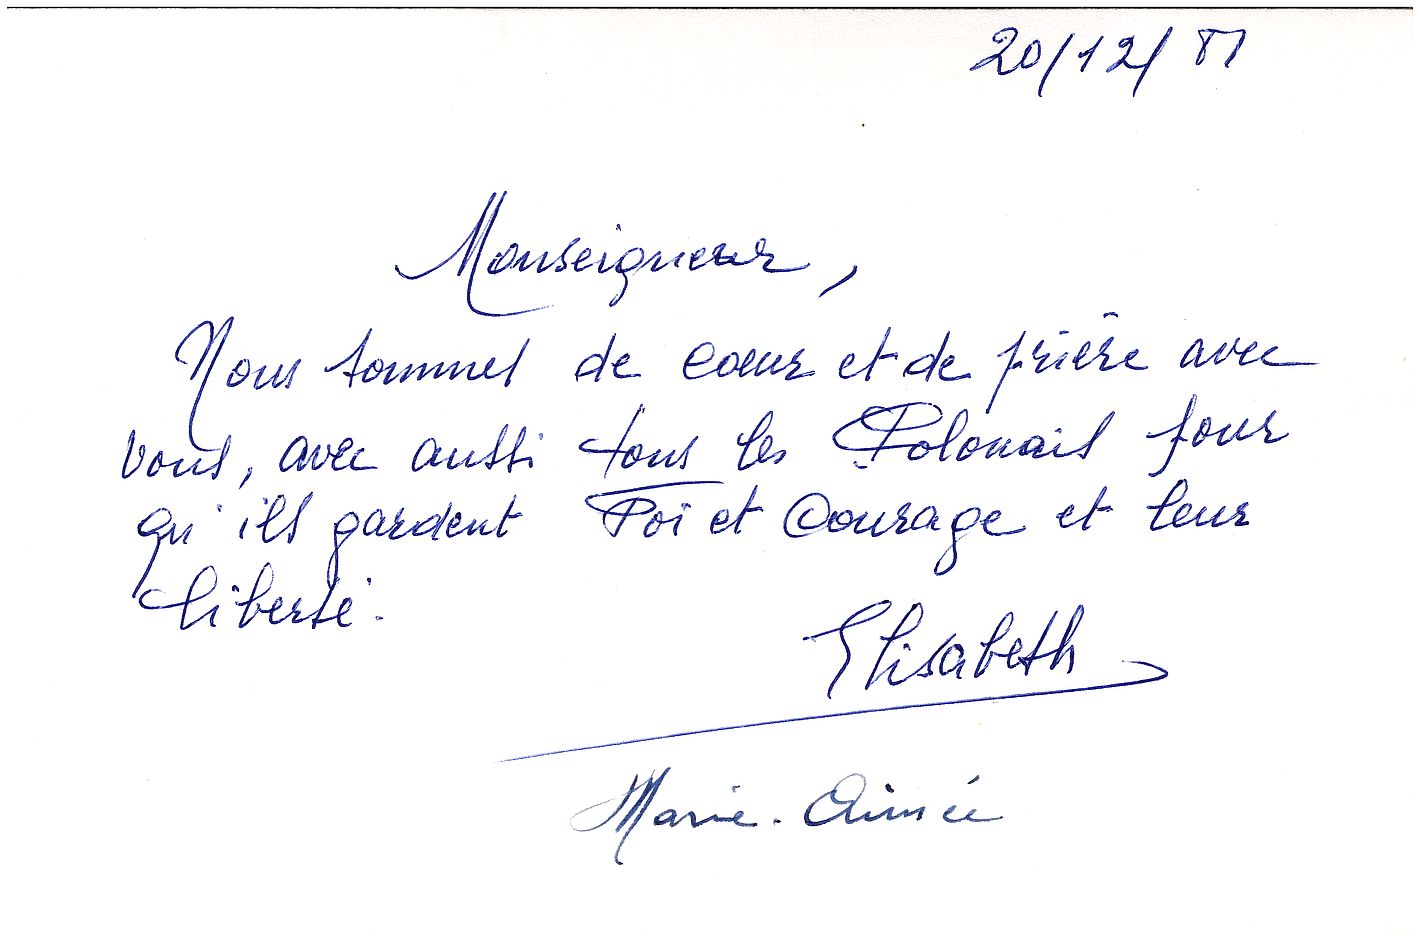 20/12/81
Monseigneur,
Nous sommes de coeur et de prière avec
vous, avec aussi tous les Polonais pour
qu'ils gardent Foi et Courage et leur
liberté.
Elisabeth
Marie-Aimée